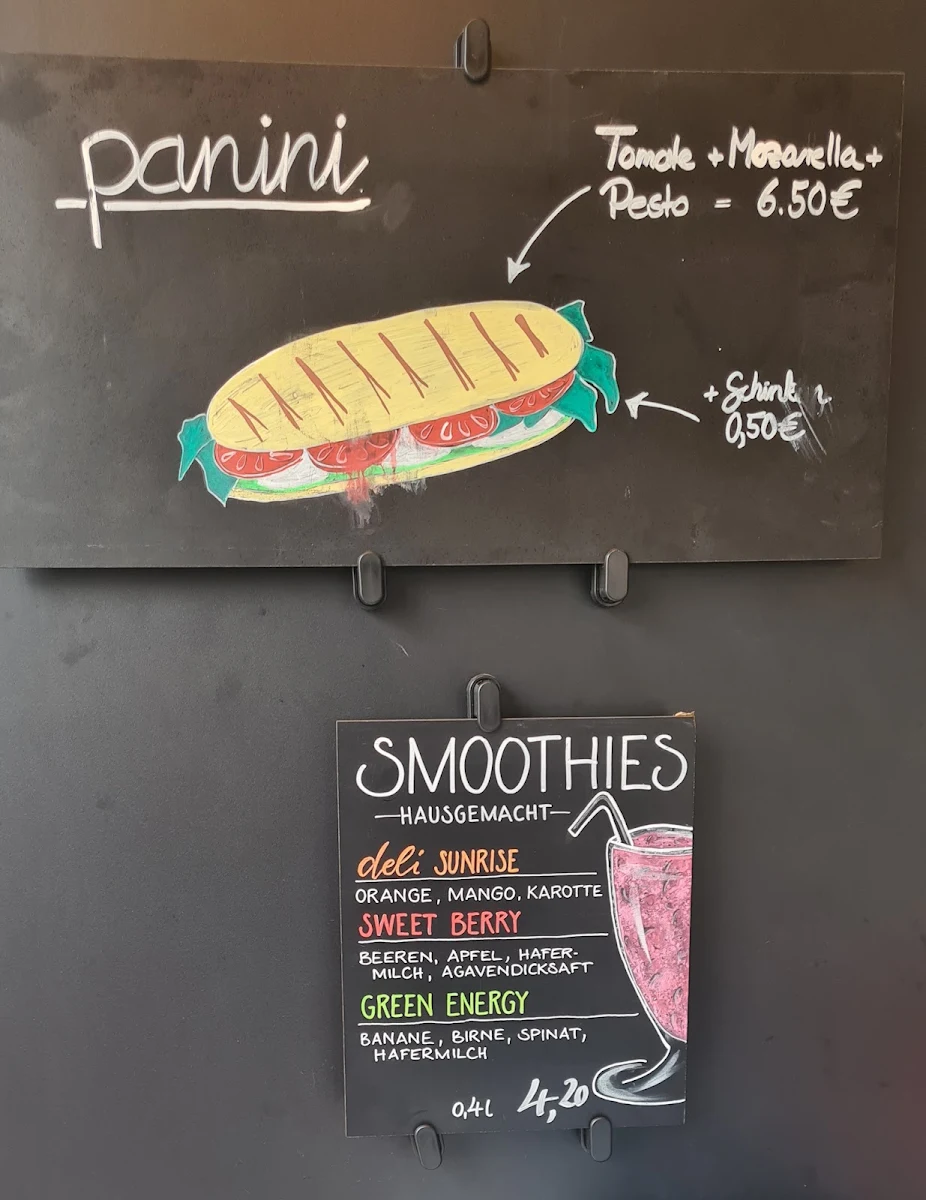 panini
Tomate + Mozarella +
Pesto = 6.50€
+ Schinken
0,50€
SMOOTHIES
—HAUSGEMACHT—
deli SUNRISE
ORANGE, MANGO, KAROTTE
SWEET BERRY
BEEREN, APFEL, HAFER-
MILCH, AGAVENDICKSAFT
GREEN ENERGY
BANANE, BIRNE, SPINAT,
HAFERMILCH
0,4l 4,20